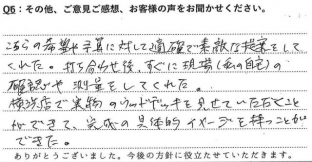 Q6：その他、ご意見ご感想、お客様の声をお聞かせください。
こちらの希望や予算に対して適確で素敵な提案をして
くれた。打ち合わせ後、すぐに現場(私の自宅)の
確認や測量をしてくれた。
横浜店で実物のウッドデッキを見せていただくこと
ができて、完成の具体的イメージを持つことが
できた。
ありがとうございました。今後の方針に役立たせていただきます。